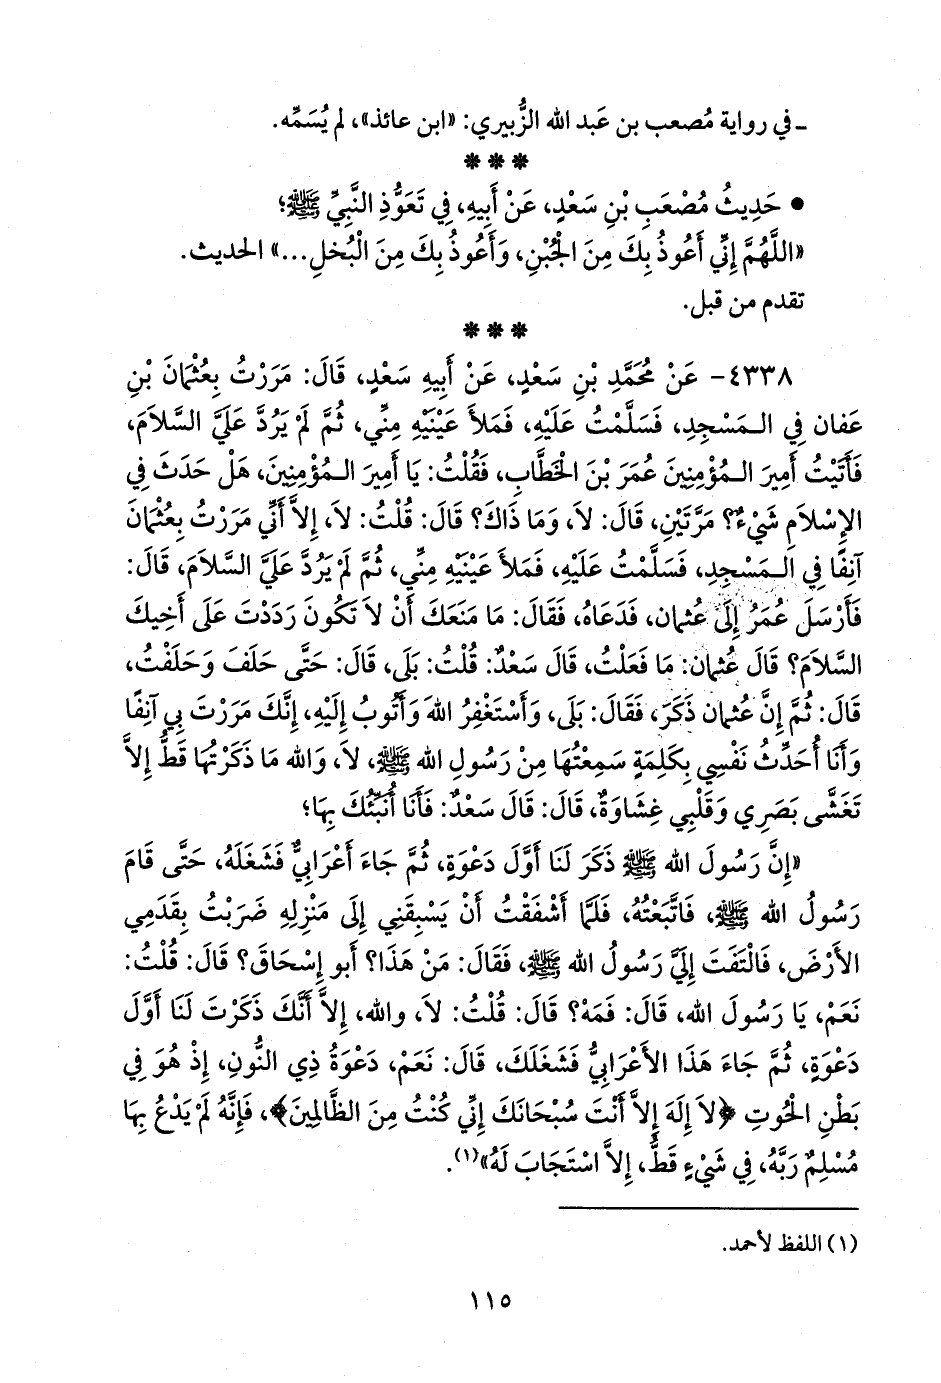 ـ في رواية مُصعب بن عَبد الله الزُّبيري: «ابن عائذ»، لم يُسَمِّه.
* * *
• حَدِيثُ مُصْعَبِ بْنِ سَعْدٍ، عَنْ أَبِيهِ، فِي تَعَوُّذِ النَّبِيِّ ﷺ؛
«اللَّهُمَّ إِنِّي أَعُوذُ بِكَ مِنَ الْجُبْنِ، وَأَعُوذُ بِكَ مِنَ الْبُخلِ...» الحديث.
تقدم من قبل.
* * *
٤٣٣٨- عَنْ مُحَمَّدِ بْنِ سَعْدٍ، عَنْ أَبِيهِ سَعْدٍ، قَالَ: مَرَرْتُ بِعُثْمَانَ بْنِ
عَفان فِي الْمَسْجِدِ، فَسَلَّمْتُ عَلَيْهِ، فَمَلأَ عَيْنَيْهِ مِنِّي، ثُمَّ لَمْ يَرُدَّ عَلَيَّ السَّلاَمَ،
فَأَتَيْتُ أَمِيرَ الْمُؤْمِنِينَ عُمَرَ بْنَ الْخَطَّابِ، فَقُلْتُ: يَا أَمِيرَ الْمُؤْمِنِينَ، هَلْ حَدَثَ فِي
الإِسْلاَمِ شَيْءٌ؟ مَرَّتَيْنِ، قَالَ: لاَ، وَمَا ذَاكَ؟ قَالَ: قُلْتُ: لاَ، إِلاَّ أَنِّي مَرَرْتُ بِعُثْمَانَ
آنِفًا فِي الْمَسْجِدِ، فَسَلَّمْتُ عَلَيْهِ، فَمَلأَ عَيْنَيْهِ مِنِّي، ثُمَّ لَمْ يَرُدَّ عَلَيَّ السَّلاَمَ، قَالَ:
فَأَرْسَلَ عُمَرُ إِلَى عُثمان، فَدَعَاهُ، فَقَالَ: مَا مَنَعَكَ أَنْ لاَ تَكُونَ رَدَدْتَ عَلَى أَخِيكَ
السَّلاَمَ؟ قَالَ عُثمان: مَا فَعَلْتُ، قَالَ سَعْدٌ: قُلْتُ: بَلَى، قَالَ: حَتَّى حَلَفَ وَحَلَفْتُ،
قَالَ: ثُمَّ إِنَّ عُثمان ذَكَرَ، فَقَالَ: بَلَى، وَأَسْتَغْفِرُ الله وَأَتُوبُ إِلَيْهِ، إِنَّكَ مَرَرْتَ بِي آنِفًا
وَأَنَا أُحَدِّثُ نَفْسِي بِكَلِمَةٍ سَمِعْتُهَا مِنْ رَسُولِ الله ﷺ، لاَ، وَالله مَا ذَكَرْتُهَا قَطُّ إِلاَّ
تَغَشَّى بَصَرِي وَقَلْبِي غِشَاوَةٌ، قَالَ: قَالَ سَعْدٌ: فَأَنَا أُنَبِّئُكَ بِهَا؛
«إِنَّ رَسُولَ الله ﷺ ذَكَرَ لَنَا أَوَّلَ دَعْوَةٍ، ثُمَّ جَاءَ أَعْرَابِيٌّ فَشَغَلَهُ، حَتَّى قَامَ
رَسُولُ الله ﷺ، فَاتَّبَعْتُهُ، فَلَمَّا أَشْفَقْتُ أَنْ يَسْبِقَنِي إِلَى مَنْزِلِهِ ضَرَبْتُ بِقَدَمِي
الأَرْضَ، فَالْتَفَتَ إِلَيَّ رَسُولُ الله ﷺ، فَقَالَ: مَنْ هَذَا؟ أَبو إِسْحَاقَ؟ قَالَ: قُلْتُ:
نَعَمْ، يَا رَسُولَ الله، قَالَ: فَمَهْ؟ قَالَ: قُلْتُ: لاَ، والله، إِلاَّ أَنَّكَ ذَكَرْتَ لَنَا أَوَّلَ
دَعْوَةٍ، ثُمَّ جَاءَ هَذَا الأَعْرَابِيُّ فَشَغَلَكَ، قَالَ: نَعَمْ، دَعْوَةُ ذِي النُّونِ، إِذْ هُوَ فِي
بَطْنِ الْحُوتِ ﴿لاَ إِلَهَ إِلاَّ أَنْتَ سُبْحَانَكَ إِنِّي كُنْتُ مِنَ الظَّالِمِينَ﴾، فَإِنَّهُ لَمْ يَدْعُ بِهَا
مُسْلِمٌ رَبَّهُ، فِي شَيْءٍ قَطُّ، إِلاَّ اسْتَجَابَ لَهُ»(١).
(١) اللفظ لأحمد.
١١٥